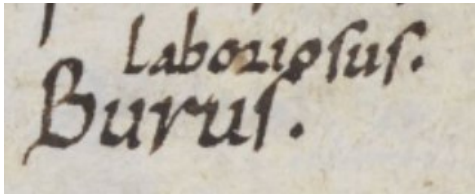 laboriosus.
Burus.